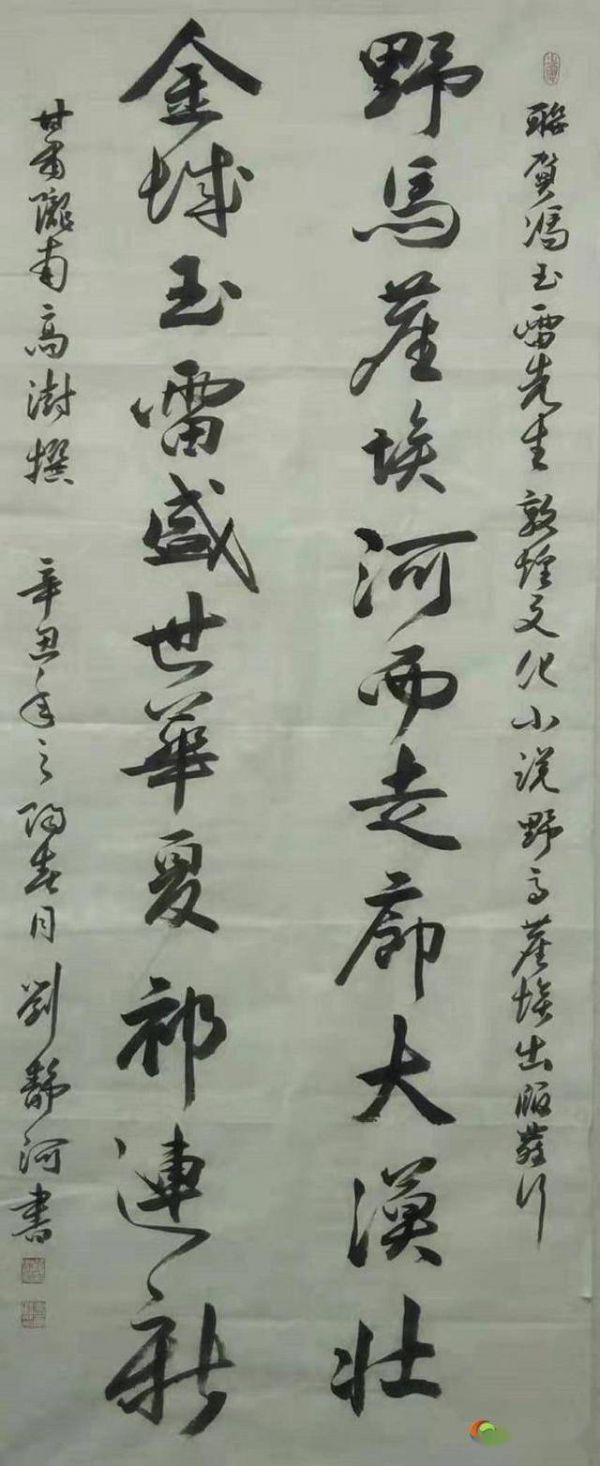 聯賀馮玉雷先生敦煌文化小说野马塵埃出版發行
野馬塵埃河西走廊大漠壮
金城玉雷盛世華夏祁連新
甘肅隴南高澍撰 辛丑年之陽春月劉靜河書